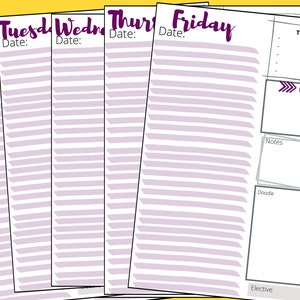 Tuesda
Date:
Wedn
Date:
Thurs
Date:
Friday
Date:
T
Notes
Doodle
Elective